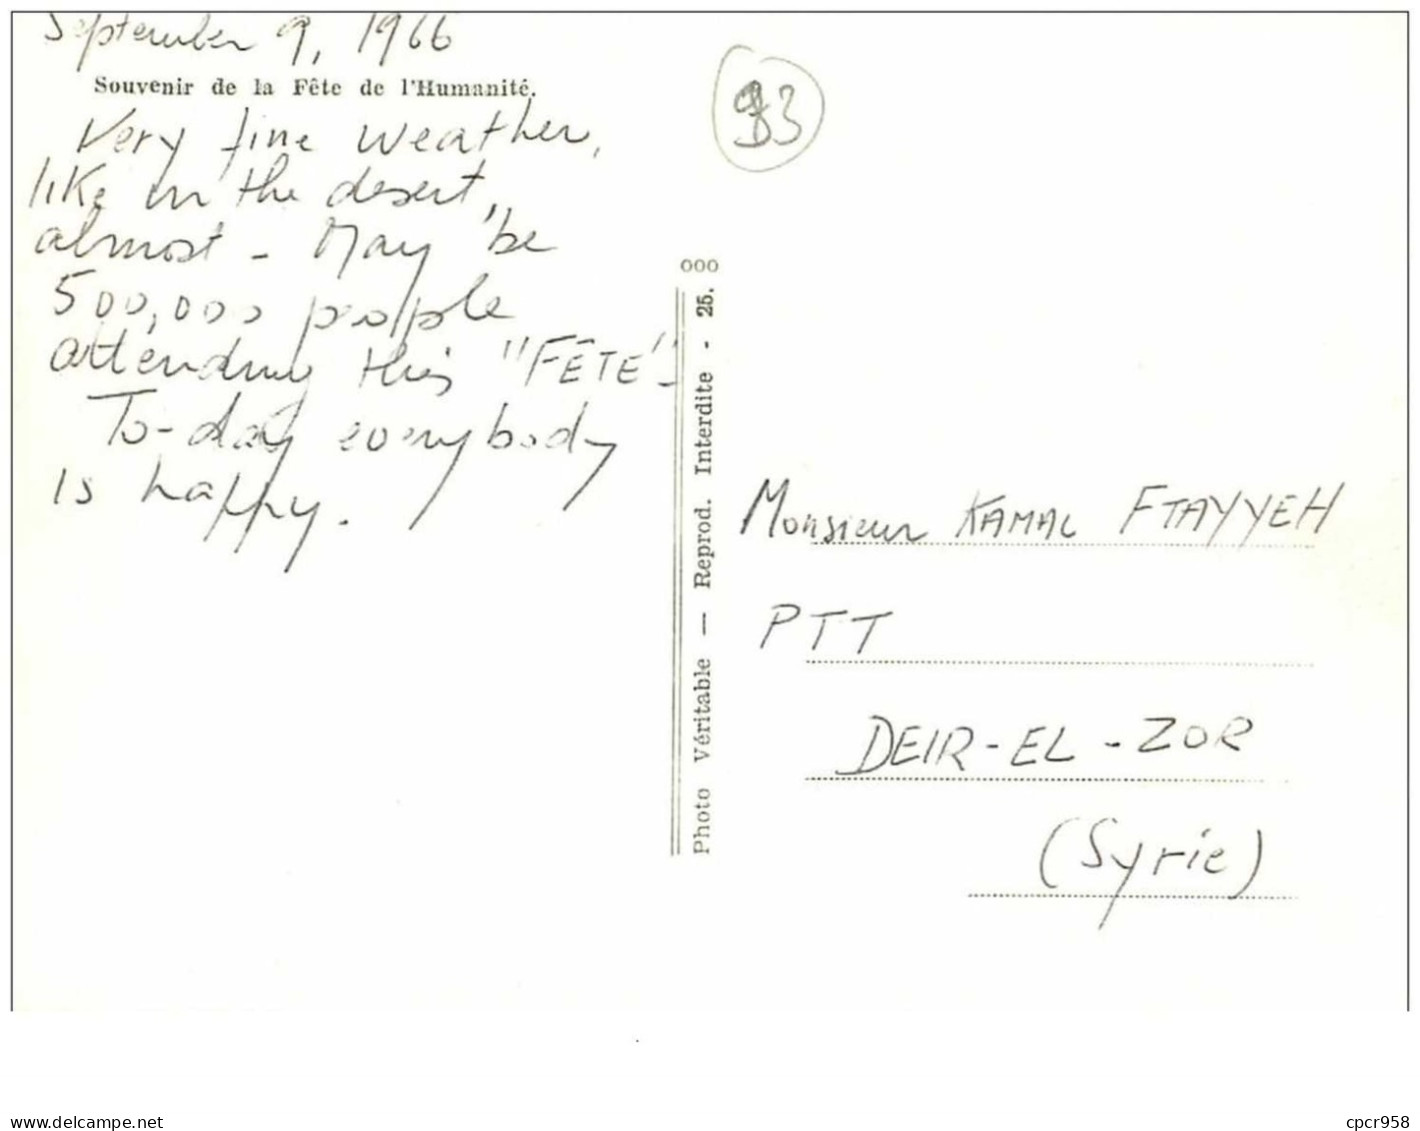 September 9, 1966
Souvenir de la Fête de l'Humanité.
Very fine weather,
like in the desert,
almost - May be
500,000 people
attending this "FÊTE" -
To-day everybody
is happy.
93
000
Photo Véritable — Reprod. Interdite - 25.
Monsieur KAMAL FTAYYEH
PTT
DEIR-EL-ZOR
(Syrie)
delcampe.net
cpcr958